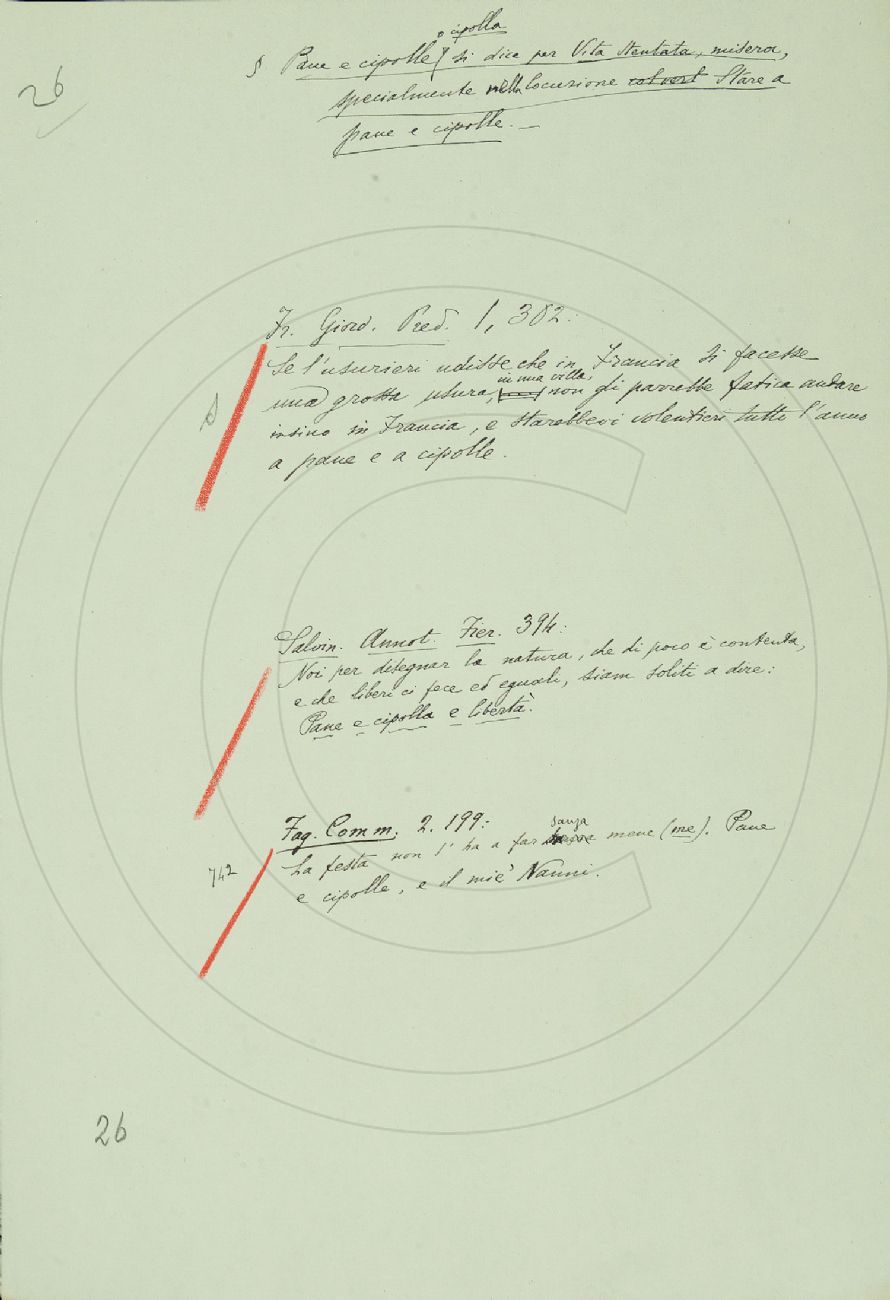 26
§ Pane e cipolle o cipolla si dice per Vita stentata, misera,
specialmente nella locuzione Stare a
pane e cipolle. —
Fr. Giord. Pred. 1, 382:
Se l'usurieri udisse che in Francia si facesse
una grossa usura, in una villa; non gli parrebbe fatica andare
insino in Francia, e starebbevi volentieri tutto l'anno
a pane e a cipolle.
Salvin. Annot. Fier. 394:
Noi per disegnar la natura, che di poco è contenta,
e che liberi ci fece ed eguali, siam soliti a dire:
Pane e cipolla e libertà.
Fag. Comm. 2. 199:
La festa non l' ha a far sanza mene (me). Pane
742
e cipolle, e il mie' Nanni.
26